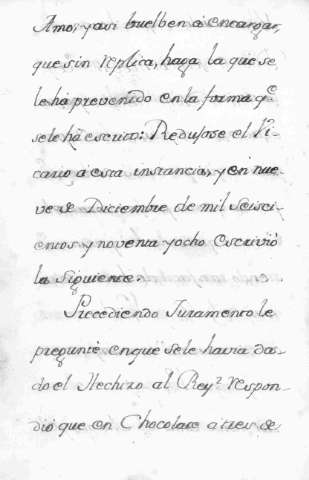 Amo, y asi buelben a encargar,
que sin replica, haga la que se
le ha prevenido en la forma q.e
se le ha escrito: Redujose el Vi-
cario a esta instancia, y en nue-
ve de Diciembre de mil seisci-
entos y noventa y ocho escrivió
la siguiente.
Precediendo Juramento le
pregunté en què se le havia da-
do el Hechizo al Rey? respon-
dió que en Chocolate a tres de